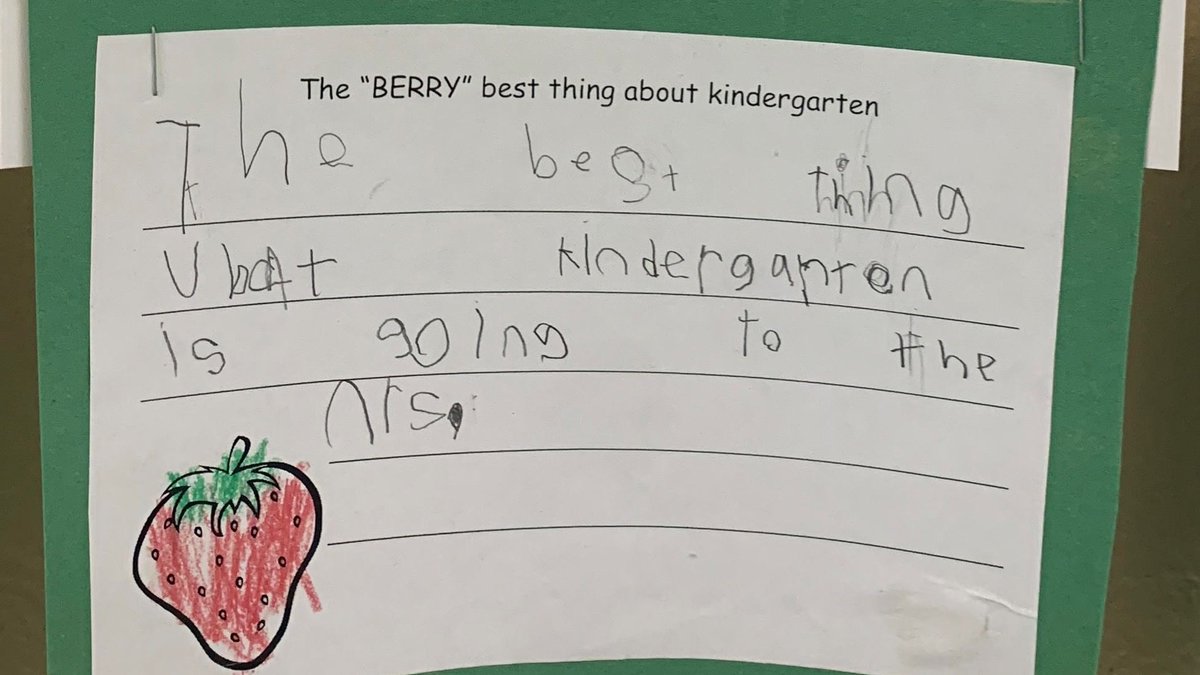 The "BERRY" best thing about kindergarten
The best thing
Ubat kindergarten
is going to the
nrs.